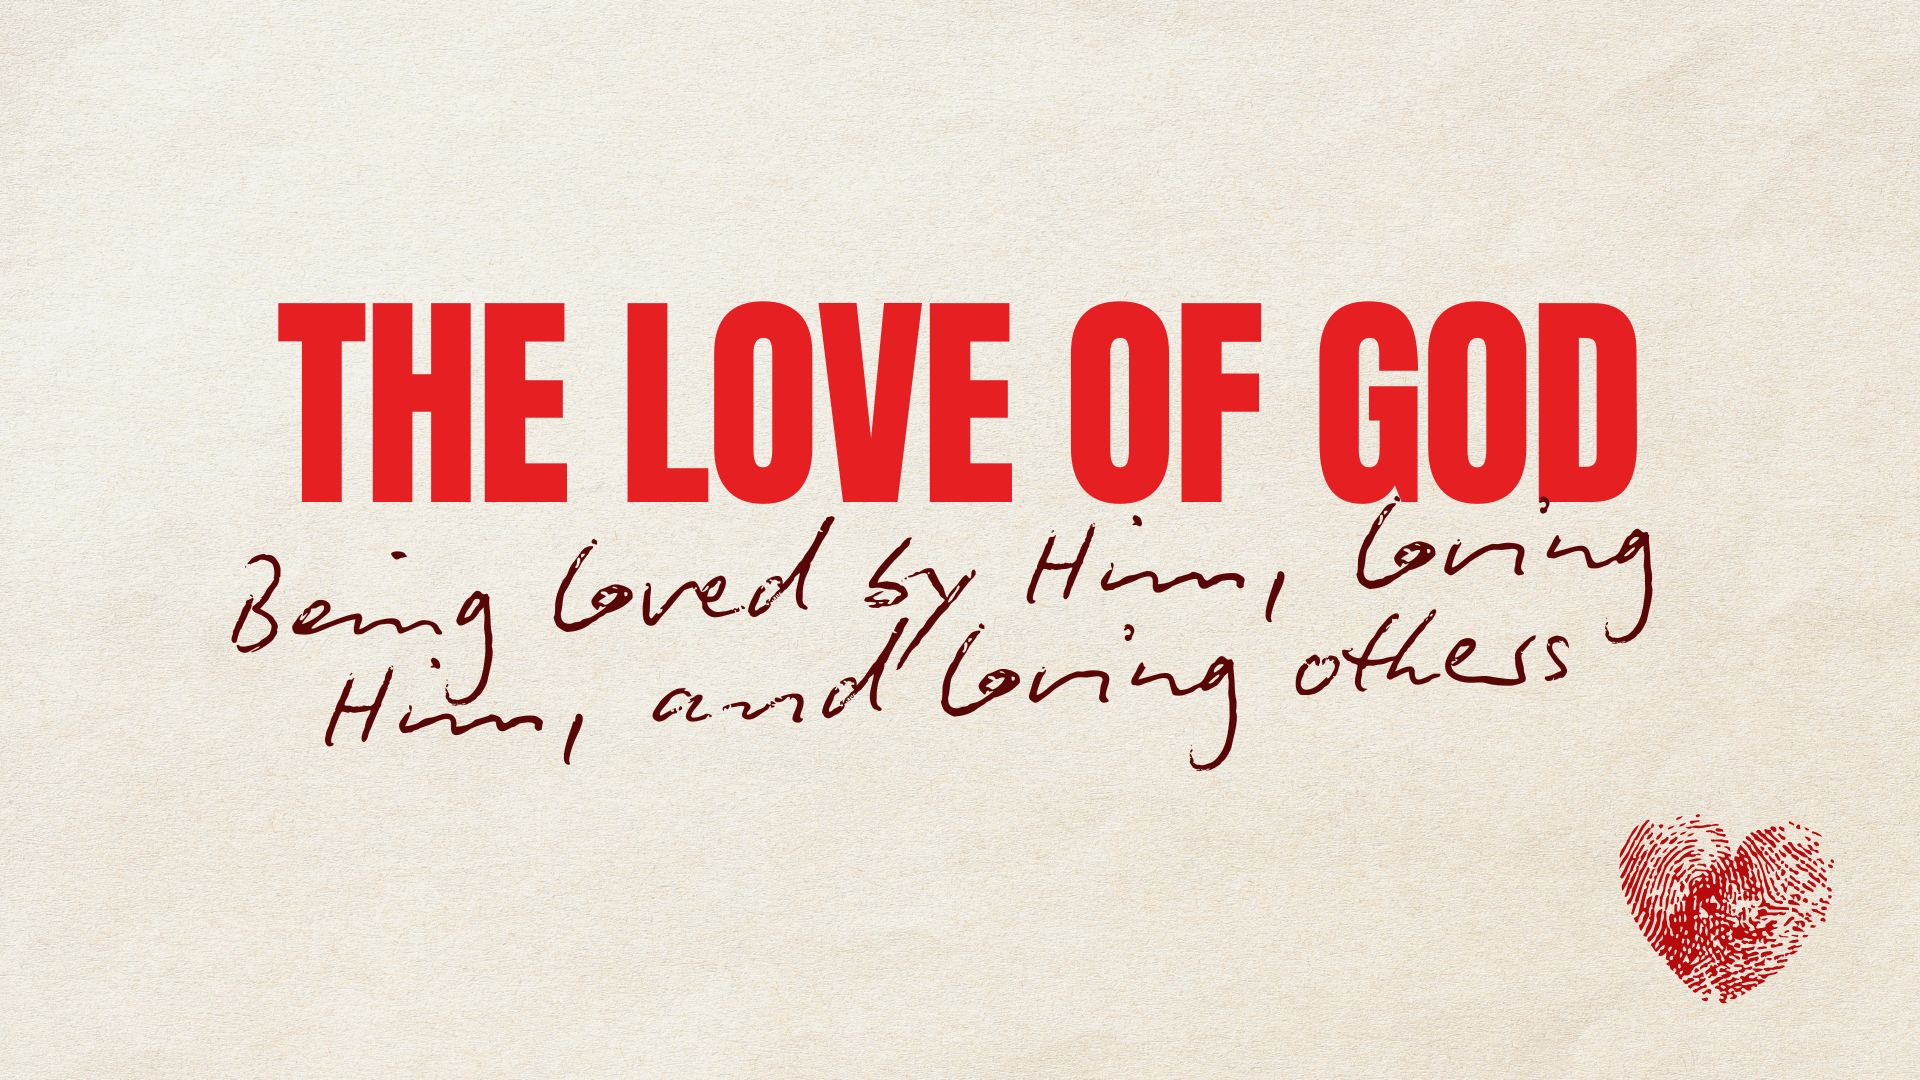 THE LOVE OF GOD
Being loved by Him, loving
Him, and loving others